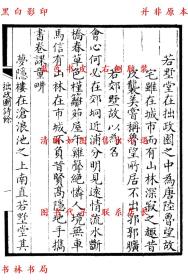 黑白影印
并非原本
若墅堂在拙政園之中為唐陸魯望故
宅雖在城市而有山林深寂之趣昔
皮襲美嘗稱魯望所居不出郛郭曠
若郊墅故以為名
會心何必在郊坰近圃分明見遠情流水斷
橋春草色槿籬茅屋午雞聲絕憐人境無車
馬信有山林在市城不負昔賢高隱地手攜
書卷課童畊
夢隱樓在滄浪池之上南直若墅堂其
拙政園詩餘
書林書局